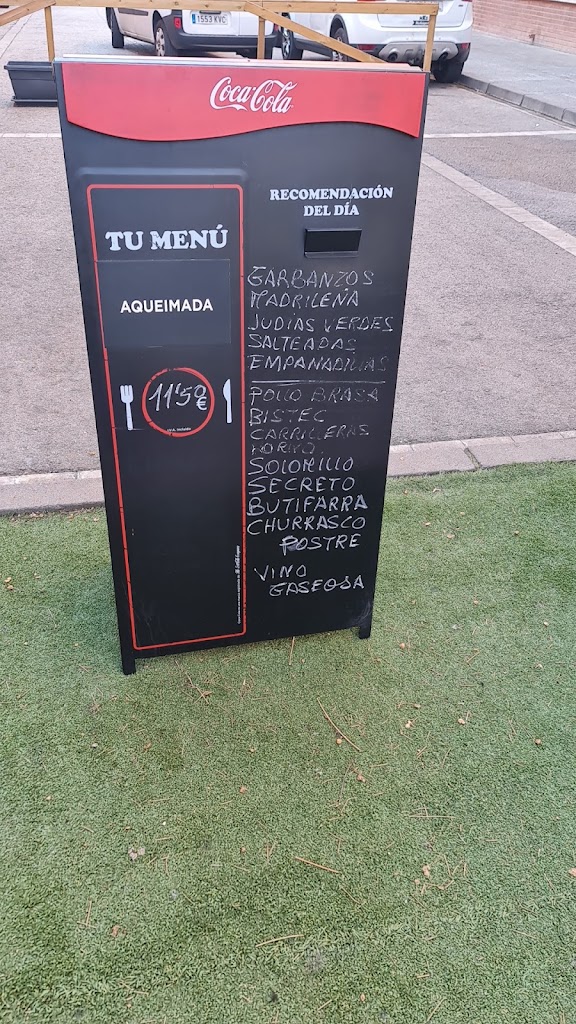 1553 KVC
Coca-Cola
TU MENÚ
AQUEIMADA
11'50
€
RECOMENDACIÓN
DEL DÍA
GARBANZOS
MADRILEÑA
JUDIAS VERDES
SALTEADAS
EMPANADILLAS
POLLO BRASA
BISTEC
CARRILLERAS
HORNO
SOLOMILLO
SECRETO
BUTIFARRA
CHURRASCO
POSTRE
VINO
GASEOSA